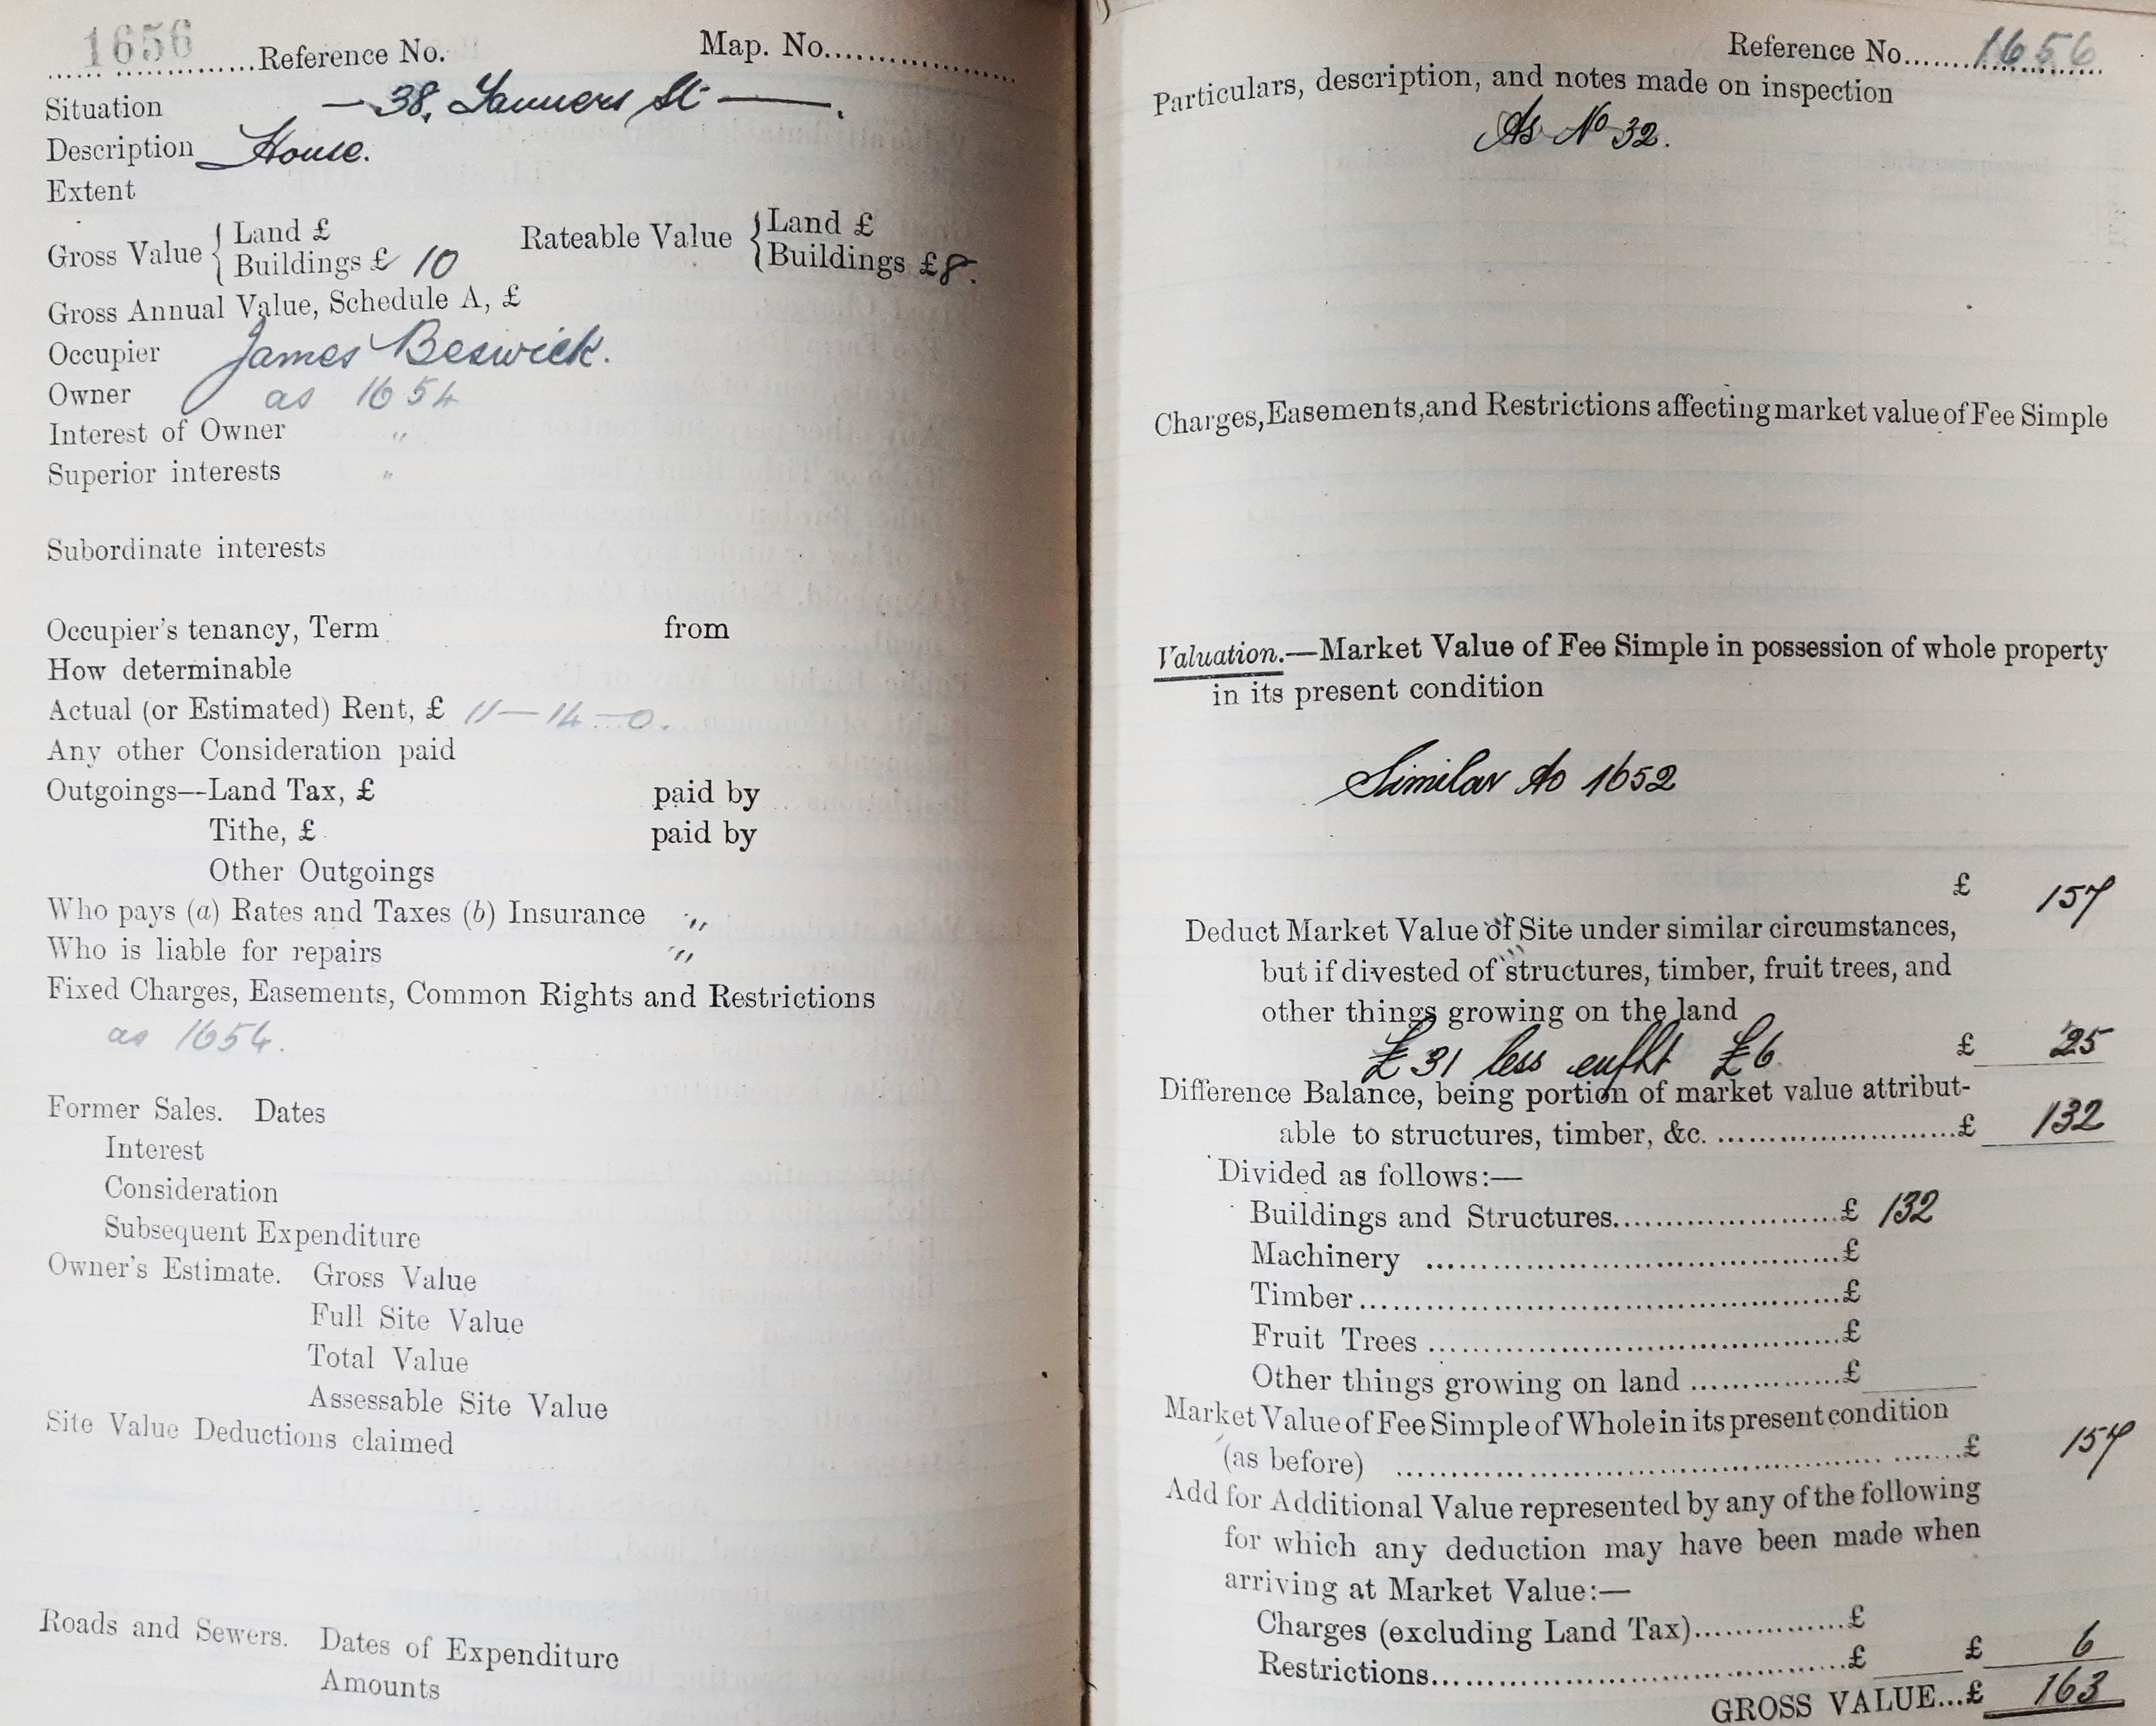 1656 Reference No. Map. No.
Situation — 38, Tanners St —.
Description House.
Extent
Gross Value { Land £
Buildings £ 10
Rateable Value { Land £
Buildings £ 8.
Gross Annual Value, Schedule A, £
Occupier James Beswick.
Owner as 1654
Interest of Owner "
Superior interests "
Subordinate interests
Occupier's tenancy, Term from
How determinable
Actual (or Estimated) Rent, £ 11—14—0.
Any other Consideration paid
Outgoings—Land Tax, £ paid by
Tithe, £ paid by
Other Outgoings
Who pays (a) Rates and Taxes (b) Insurance "
Who is liable for repairs "
Fixed Charges, Easements, Common Rights and Restrictions
as 1654.
Former Sales. Dates
Interest
Consideration
Subsequent Expenditure
Owner's Estimate. Gross Value
Full Site Value
Total Value
Assessable Site Value
Site Value Deductions claimed
Roads and Sewers. Dates of Expenditure
Amounts
Reference No. 1656
Particulars, description, and notes made on inspection
As No 32.
Charges, Easements, and Restrictions affecting market value of Fee Simple
Valuation.—Market Value of Fee Simple in possession of whole property
in its present condition
Similar to 1652
£ 157
Deduct Market Value of Site under similar circumstances,
but if divested of structures, timber, fruit trees, and
other things growing on the land
£31 less £6 £ 25
Difference Balance, being portion of market value attribut-
able to structures, timber, &c. £ 132
Divided as follows:—
Buildings and Structures £ 132
Machinery £
Timber £
Fruit Trees £
Other things growing on land £
Market Value of Fee Simple of Whole in its present condition
(as before) £ 157
Add for Additional Value represented by any of the following
for which any deduction may have been made when
arriving at Market Value:—
Charges (excluding Land Tax) £
Restrictions £ £ 6
GROSS VALUE...£ 163